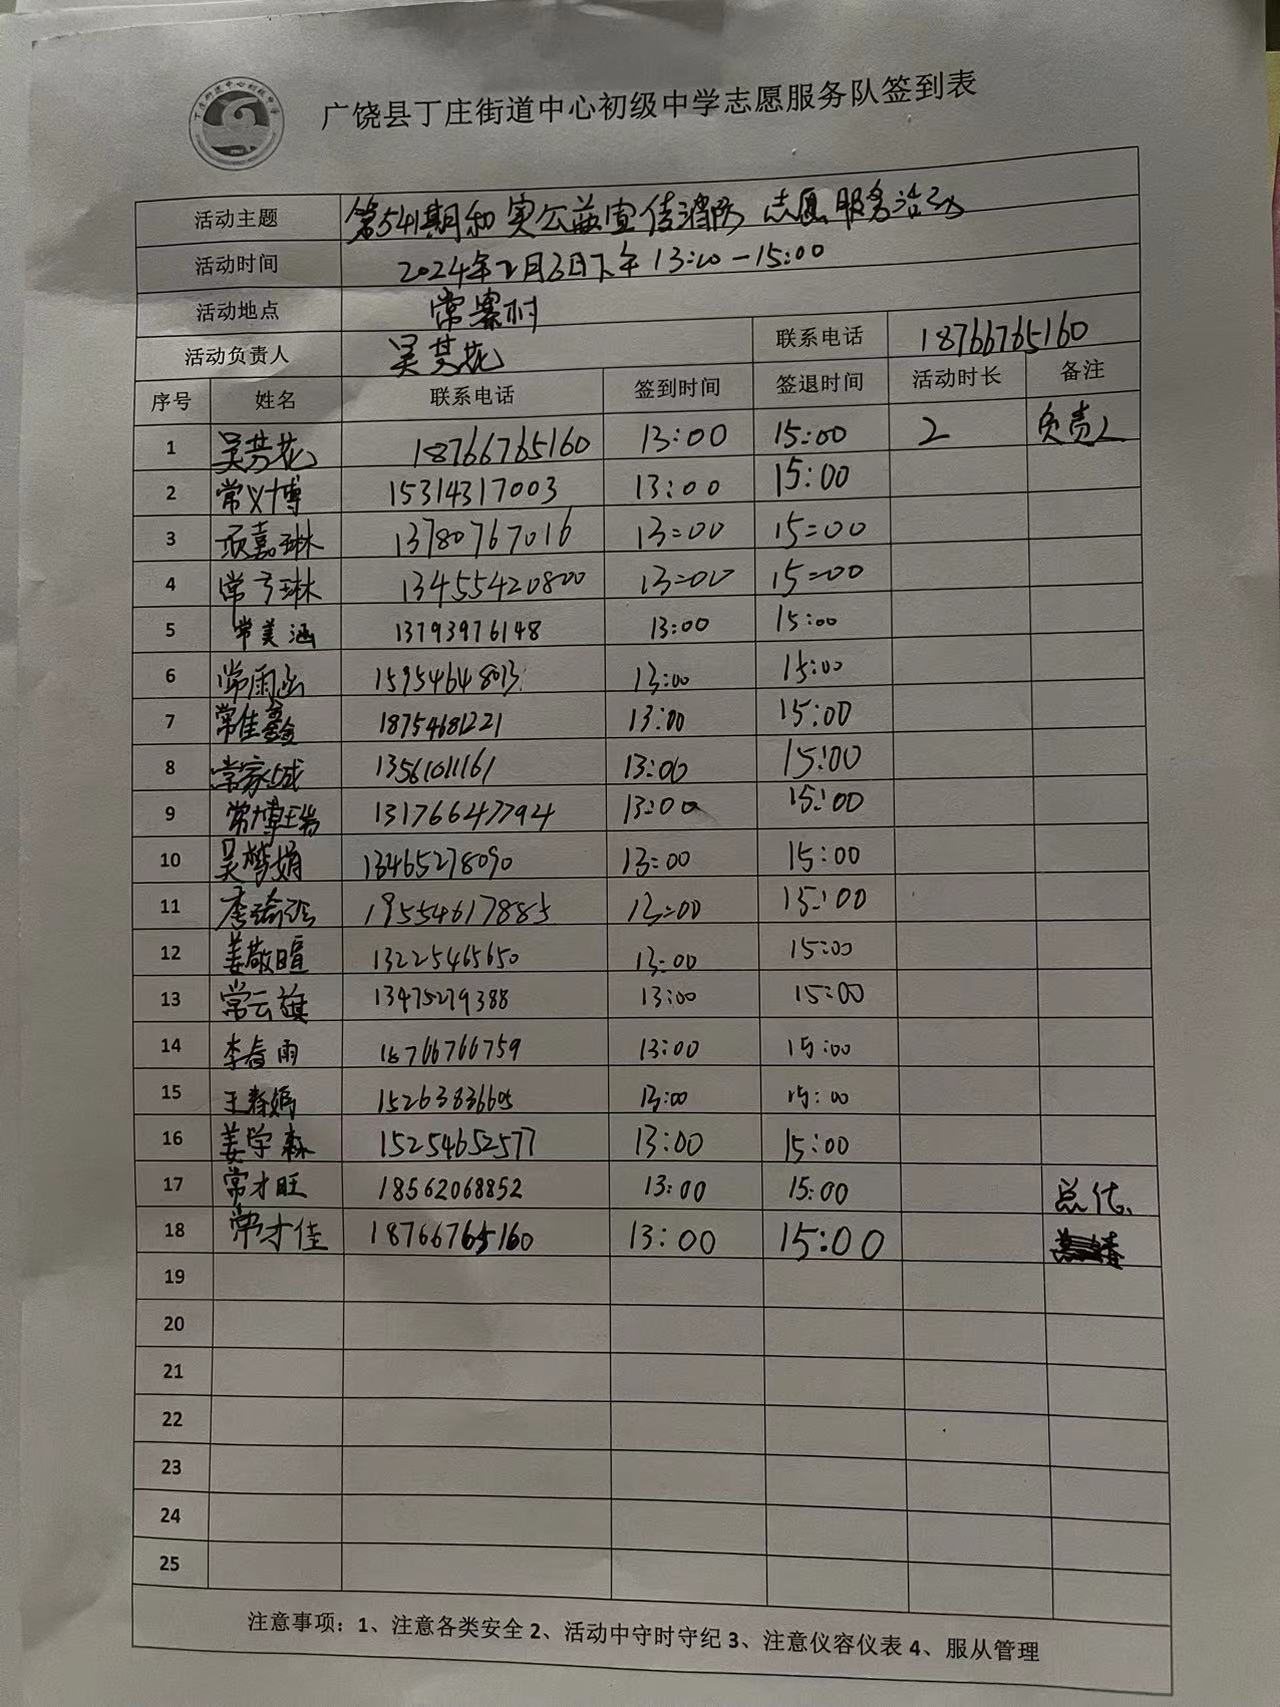 广饶县丁庄街道中心初级中学志愿服务队签到表
活动主题 第541期和实公益宣传消防志愿服务活动
活动时间 2024年2月3日下午13:00-15:00
活动地点 常寨村
活动负责人 吴芳花 联系电话 18766765160
序号 姓名 联系电话 签到时间 签退时间 活动时长 备注
1 吴芳花 18766765160 13:00 15:00 2 负责人
2 常义博 15314317003 13:00 15:00
3 嘉琳 13780767016 13:00 15:00
4 常亏琳 13455420800 13:00 15:00
5 常美涵 13793976148 13:00 15:00
6 常雨函 15954648013 13:00 15:00
7 常佳鑫 18754681221 13:00 15:00
8 常家城 13561011161 13:00 15:00
9 常博瑞 13176647794 13:00 15:00
10 吴梦娟 13465278090 13:00 15:00
11 李瑜泓 19554617885 13:00 15:00
12 姜敬暄 13225465650 13:00 15:00
13 常云旗 13475279388 13:00 15:00
14 李春雨 18766766759 13:00 15:00
15 王春嫣 15263836605 13:00 15:00
16 姜学森 15254652577 13:00 15:00
17 常才旺 18562068852 13:00 15:00 总结
18 常才佳 18766765160 13:00 15:00
19
20
21
22
23
24
25
注意事项：1、注意各类安全 2、活动中守时守纪 3、注意仪容仪表 4、服从管理